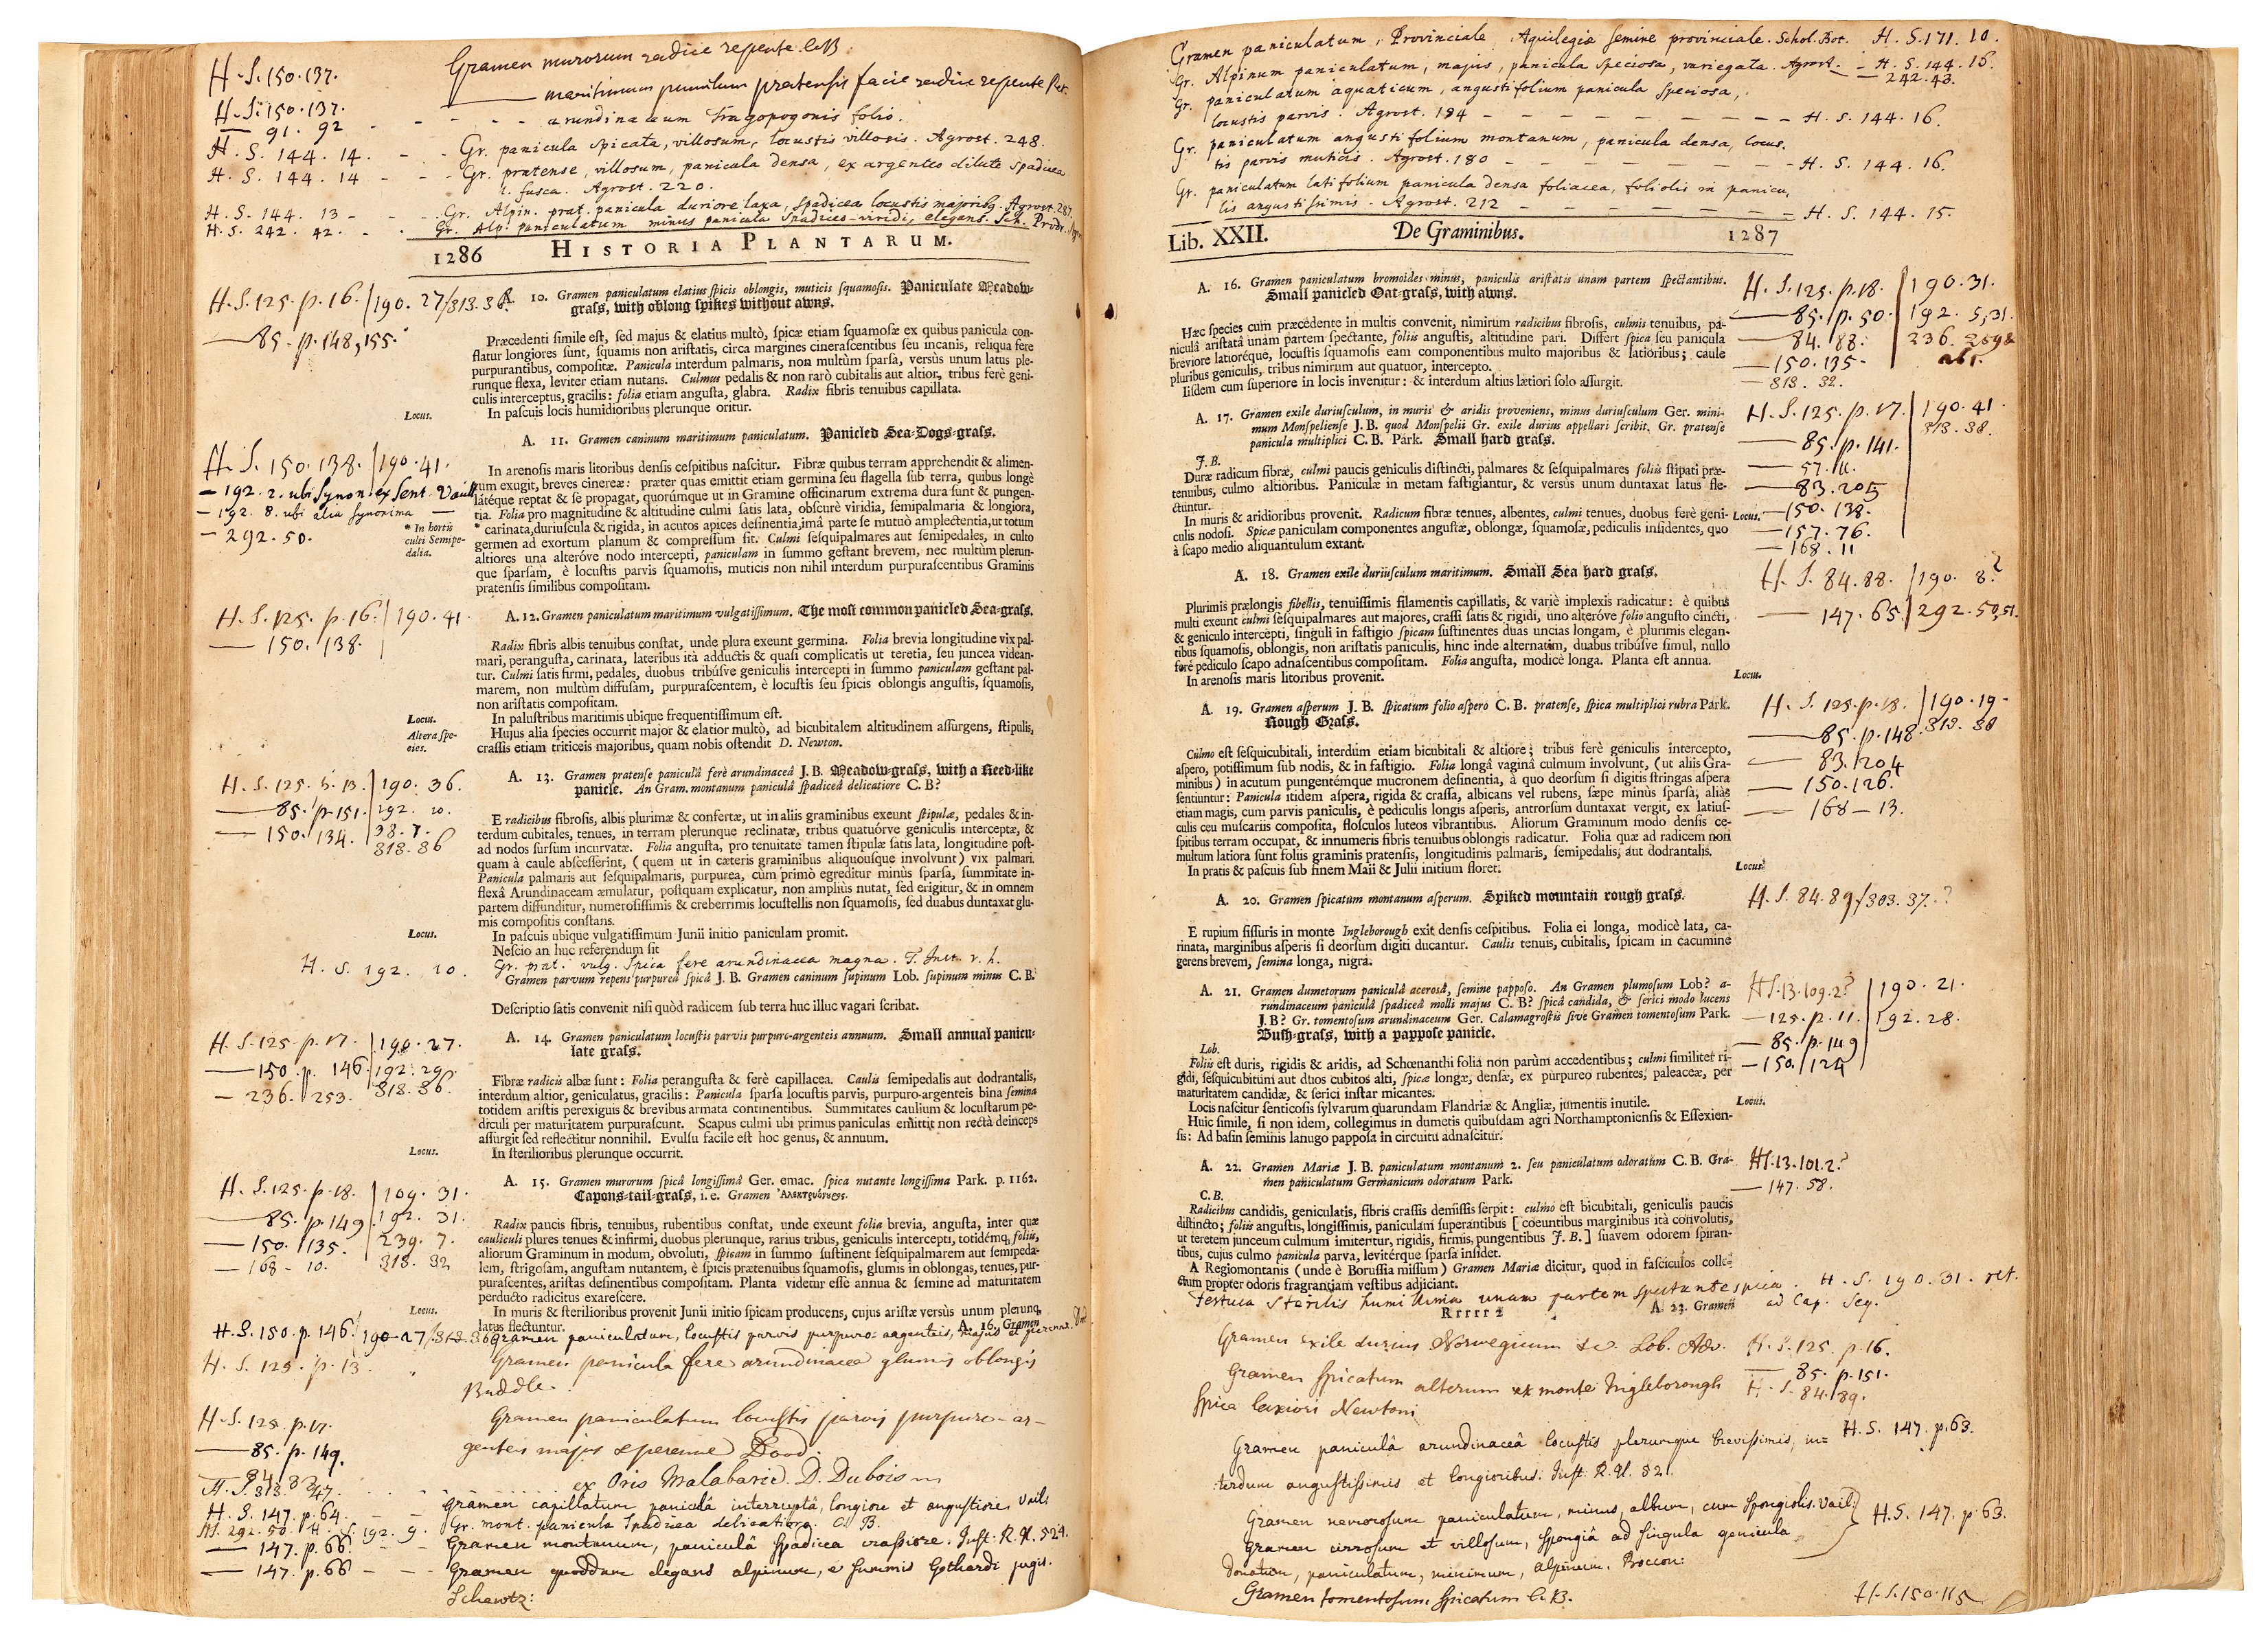 H. S. 150. 137. Gramen murorum radice repente. C. B.
H. S. 150. 137. maritimum pumilum pratensis facie radice repente
91. 92 - - - - - - arundinaceum Tragopogonis folio.
H. S. 144. 14. - - Gr. panicula spicata, villosum, locustis villosis. Agrost. 248.
H. S. 144. 14 - - - Gr. pratense, villosum, panicula densa, ex argenteo dilute spadicea
l. fusca. Agrost. 220.
H. S. 144. 13 - - - Gr. Alpin. prat. panicula duriore laxa, spadicea locustis majorib. Agrost. 287.
H. S. 242. 42. - - Gr. Alp. paniculatum minus panicula spadiceo-viridi, elegans. Sch. Prodr.
1286 HISTORIA PLANTARUM.
H. S. 125. p. 16. 190. 27/313. 36.
85. p. 148, 155.
A. 10. Gramen paniculatum elatius spicis oblongis, muticis squamosis. Paniculate Meadow-
grass, with oblong spikes without awns.
Præcedenti simile est, sed majus & elatius multò, spicæ etiam squamosæ ex quibus panicula con-
flatur longiores sunt, squamis non aristatis, circa margines cinerascentibus seu incanis, reliqua fere
purpurantibus, compositæ. Panicula interdum palmaris, non multùm sparsa, versùs unum latus ple-
runque flexa, leviter etiam nutans. Culmus pedalis & non rarò cubitalis aut altior, tribus ferè geni-
culis interceptus, gracilis: folia etiam angusta, glabra. Radix fibris tenuibus capillata.
Locus. In pascuis locis humidioribus plerunque oritur.
A. 11. Gramen caninum maritimum paniculatum. Panicled Sea-Dogs-grass.
H. S. 150. 138. 190. 41.
192. 2. ubi Synon. ex Sent. Vaill
192. 8. ubi alia Synonima
292. 50.
* In hortis
culti Semipe-
dalia.
In arenosis maris litoribus densis cespitibus nascitur. Fibræ quibus terram apprehendit & alimen-
tum exugit, breves cinereæ: præter quas emittit etiam germina seu flagella sub terra, quibus longè
latéque reptat & se propagat, quorúmque ut in Gramine officinarum extrema dura sunt & pungen-
tia. Folia pro magnitudine & altitudine culmi satis lata, obscurè viridia, semipalmaria & longiora,
* carinata, duriuscula & rigida, in acutos apices desinentia, imâ parte se mutuò amplectentia, ut totum
germen ad exortum planum & compressum sit. Culmi sesquipalmares aut semipedales, in culto
altiores una alteróve nodo intercepti, paniculam in summo gestant brevem, nec multùm plerun-
que sparsam, è locustis parvis squamosis, muticis non nihil interdum purpurascentibus Graminis
pratensis similibus compositam.
H. S. 125. p. 16. 190. 41.
150. 138.
A. 12. Gramen paniculatum maritimum vulgatissimum. The most common panicled Sea-grass.
Radix fibris albis tenuibus constat, unde plura exeunt germina. Folia brevia longitudine vix pal-
mari, perangusta, carinata, lateribus ità adductis & quasi complicatis ut teretia, seu juncea videan-
tur. Culmi satis firmi, pedales, duobus tribúsve geniculis intercepti in summo paniculam gestant pal-
marem, non multùm diffusam, purpurascentem, è locustis seu spicis oblongis angustis, squamosis,
non aristatis compositam.
Locus. In palustribus maritimis ubique frequentissimum est.
Altera spe-
cies.
Hujus alia species occurrit major & elatior multò, ad bicubitalem altitudinem assurgens, stipulis,
crassis etiam triticeis majoribus, quam nobis ostendit D. Newton.
H. S. 125. p. 13. 190. 36.
85. p. 151. 192. 10.
150. 134. 38. 7.
313. 36
A. 13. Gramen pratense paniculâ ferè arundinaceâ J. B. Meadow-grass, with a Reed-like
panicle. An Gram. montanum paniculâ spadiceâ delicatiore C. B?
E radicibus fibrosis, albis plurimæ & confertæ, ut in aliis graminibus exeunt stipulæ, pedales & in-
terdum cubitales, tenues, in terram plerunque reclinatæ, tribus quatuórve geniculis interceptæ, &
ad nodos sursum incurvatæ. Folia angusta, pro tenuitate tamen stipulæ satis lata, longitudine post-
quam à caule abscesserint, (quem ut in cæteris graminibus aliquousque involvunt) vix palmari.
Panicula palmaris aut sesquipalmaris, purpurea, cùm primò egreditur minùs sparsa, summitate in-
flexâ Arundinaceam æmulatur, postquam explicatur, non ampliùs nutat, sed erigitur, & in omnem
partem diffunditur, numerosissimis & creberrimis locustellis non squamosis, sed duabus duntaxat glu-
mis compositis constans.
Locus. In pascuis ubique vulgatissimum Junii initio paniculam promit.
Nescio an huc referendum sit
H. S. 192. 10. Gr. prat. vulg. Spica fere arundinacea magna. T. Inst. r. h.
Gramen parvum repens purpureâ spicâ J. B. Gramen caninum supinum Lob. supinum minus C. B.
Descriptio satis convenit nisi quòd radicem sub terra huc illuc vagari scribat.
H. S. 125. p. 17. 190. 27.
150. p. 146. 192. 29.
236. 253. 313. 36.
A. 14. Gramen paniculatum locustis parvis purpuro-argenteis annuum. Small annual panicu-
late grass.
Fibræ radicis albæ sunt: Folia perangusta & ferè capillacea. Caulis semipedalis aut dodrantalis,
interdum altior, geniculatus, gracilis: Panicula sparsa locustis parvis, purpuro-argenteis bina semina
totidem aristis perexiguis & brevibus armata continentibus. Summitates caulium & locustarum pe-
diculi per maturitatem purpurascunt. Scapus culmi ubi primus paniculas emittit non rectà deinceps
assurgit sed reflectitur nonnihil. Evulsu facile est hoc genus, & annuum.
Locus. In sterilioribus plerunque occurrit.
H. S. 125. p. 18. 109. 31.
85. p. 149. 192. 31.
150. 135. 239. 7.
168 - 10. 313. 32
A. 15. Gramen murorum spicâ longissimâ Ger. emac. spica nutante longissima Park. p. 1162.
Capons-tail-grass, i. e. Gramen Ἀλεκτρυόνουρος.
Radix paucis fibris, tenuibus, rubentibus constat, unde exeunt folia brevia, angusta, inter quæ
cauliculi plures tenues & infirmi, duobus plerunque, rarius tribus, geniculis intercepti, totidémq, foliis,
aliorum Graminum in modum, obvoluti, spicam in summo sustinent sesquipalmarem aut semipeda-
lem, strigosam, angustam nutantem, è spicis prætenuibus squamosis, glumis in oblongas, tenues, pur-
purascentes, aristas desinentibus compositam. Planta videtur esse annua & semine ad maturitatem
perducto radicitus exarescere.
Locus. In muris & sterilioribus provenit Junii initio spicam producens, cujus aristæ versùs unum plerunq,
latus flectuntur. A. 16. Gramen
H. S. 150. p. 146. 190. 27/313. 36 Gramen paniculatum, locustis parvis purpuro-argenteis, majus et perenne.
H. S. 125. p. 13. Gramen panicula fere arundinacea glumis oblongis
Buddle.
H. S. 125. p. 17. Gramen paniculatum locustis parvis purpuro-ar-
85. p. 149. genteis majus & perenne Dood.
ex Oris Malabaric. D. Dubois
H. S. 147. p. 64. Gramen capillatum paniculâ interruptâ, longiore et angustiore Vaill:
H. S. 292. 50. H. S. 192. 9. Gr. mont. panicula spadicea delicatiore. C. B.
147. p. 66. Gramen montanum, paniculâ spadicea crassiore. Inst. R. H. 524.
147. p. 66 - - - Gramen quoddam elegans alpinum, e summis Gothardi jugis.
Schewtz:
Gramen paniculatum, Provinciale Aquilegiæ semine provinciale. Schol. Bot. H. S. 171. 10.
Gr. Alpinum paniculatum, majus, panicula speciosa, variegata. Agrost. - - H. S. 144. 16.
242. 43.
Gr. paniculatum aquaticum, angustifolium panicula speciosa,
locustis parvis. Agrost. 194 - - - - - - - H. S. 144. 16.
Gr. paniculatum angustifolium montanum, panicula densa, locus.
tis parvis muticis. Agrost. 180 - - - - - - - H. S. 144. 16.
Gr. paniculatum latifolium panicula densa foliacea, foliolis in panicu.
lis angustissimis. Agrost. 212 - - - - - - - H. S. 144. 15.
Lib. XXII. De Graminibus. 1287
A. 16. Gramen paniculatum bromoides minus, paniculis aristatis unam partem spectantibus.
Small panicled Oat-grass, with awns.
H. S. 125. p. 18. 190. 31.
85. p. 50. 192. 5, 31.
84. 88. 236. 259 &
150. 135.
313. 32.
Hæc species cum præcedente in multis convenit, nimirum radicibus fibrosis, culmis tenuibus, pa-
niculâ aristatâ unam partem spectante, foliis angustis, altitudine pari. Differt spica seu panicula
breviore latioréque, locustis squamosis eam componentibus multo majoribus & latioribus; caule
pluribus geniculis, tribus nimirum aut quatuor, intercepto.
Iisdem cum superiore in locis invenitur: & interdum altius lætiori solo assurgit.
A. 17. Gramen exile duriusculum, in muris & aridis proveniens, minus duriusculum Ger. mini-
mum Monspeliense J. B. quod Monspelii Gr. exile durius appellari scribit. Gr. pratense
panicula multiplici C. B. Park. Small hard grass.
H. S. 125. p. 17. 190. 41.
313. 38.
85. p. 141.
57. 11.
83. 205
150. 138.
157. 76.
168. 11
J. B.
Duræ radicum fibræ, culmi paucis geniculis distincti, palmares & sesquipalmares foliis stipati præ-
tenuibus, culmo altioribus. Paniculæ in metam fastigiantur, & versùs unum duntaxat latus fle-
ctuntur.
In muris & aridioribus provenit. Radicum fibræ tenues, albentes, culmi tenues, duobus ferè geni- Locus.
culis nodosi. Spicæ paniculam componentes angustæ, oblongæ, squamosæ, pediculis insidentes, quo
à scapo medio aliquantulum extant.
A. 18. Gramen exile duriusculum maritimum. Small Sea hard grass.
H. S. 84. 88. 190. 8?
147. 65. 292. 50, 51.
Plurimis prælongis fibellis, tenuissimis filamentis capillatis, & variè implexis radicatur: è quibus
multi exeunt culmi sesquipalmares aut majores, crassi satis & rigidi, uno alteróve folio angusto cincti,
& geniculo intercepti, singuli in fastigio spicam sustinentes duas uncias longam, è plurimis elegan-
tibus squamosis, oblongis, non aristatis paniculis, hinc inde alternatim, duabus tribúsve simul, nullo
feré pediculo scapo adnascentibus compositam. Folia angusta, modicè longa. Planta est annua.
In arenosis maris litoribus provenit. Locus.
A. 19. Gramen asperum J. B. spicatum folio aspero C. B. pratense, spica multiplici rubra Park.
Rough Grass.
H. S. 125. p. 18. 190. 19.
85. p. 148. 313. 38
83. 204
150. 126.
168 - 13.
Culmo est sesquicubitali, interdum etiam bicubitali & altiore; tribus ferè geniculis intercepto,
aspero, potissimum sub nodis, & in fastigio. Folia longâ vaginâ culmum involvunt, (ut aliis Gra-
minibus) in acutum pungentémque mucronem desinentia, à quo deorsum si digitis stringas aspera
sentiuntur: Panicula itidem aspera, rigida & crassa, albicans vel rubens, sæpe minùs sparsa; aliàs
etiam magis, cum parvis paniculis, è pediculis longis asperis, antrorsum duntaxat vergit, ex latius-
culis ceu muscariis composita, flosculos luteos vibrantibus. Aliorum Graminum modo densis ce-
spitibus terram occupat, & innumeris fibris tenuibus oblongis radicatur. Folia quæ ad radicem non
multum latiora sunt foliis graminis pratensis, longitudinis palmaris, semipedalis, aut dodrantalis.
In pratis & pascuis sub finem Maii & Julii initium floret. Locus.
A. 20. Gramen spicatum montanum asperum. Spiked mountain rough grass.
H. S. 84. 89. 303. 37.?
E rupium fissuris in monte Ingleborough exit densis cespitibus. Folia ei longa, modicè lata, ca-
rinata, marginibus asperis si deorsum digiti ducantur. Caulis tenuis, cubitalis, spicam in cacumine
gerens brevem, semina longa, nigra.
A. 21. Gramen dumetorum paniculâ acerosâ, semine papposo. An Gramen plumosum Lob? a-
rundinaceum paniculâ spadiceâ molli majus C. B? spicâ candida, & serici modo lucens
J. B? Gr. tomentosum arundinaceum Ger. Calamagrostis sive Gramen tomentosum Park.
Bush-grass, with a pappose panicle.
HS. 13. 109. 2? 190. 21.
125. p. 11. 192. 28.
85. p. 149
150. 124
Lob.
Foliis est duris, rigidis & aridis, ad Schœnanthi folia non parùm accedentibus; culmi similiter ri-
gidi, sesquicubitum aut duos cubitos alti, spicæ longæ, densæ, ex purpureo rubentes, paleaceæ, per
maturitatem candidæ, & serici instar micantes.
Locis nascitur senticosis sylvarum quarundam Flandriæ & Angliæ, jumentis inutile. Locus.
Huic simile, si non idem, collegimus in dumetis quibusdam agri Northamptoniensis & Essexien-
sis: Ad basin seminis lanugo papposa in circuitu adnascitur.
A. 22. Gramen Mariæ J. B. paniculatum montanum 2. seu paniculatum odoratum C. B. Gra-
men paniculatum Germanicum odoratum Park.
HS. 13. 101. 2?
147. 58.
C. B.
Radicibus candidis, geniculatis, fibris crassis demissis serpit: culmo est bicubitali, geniculis paucis
distincto; foliis angustis, longissimis, paniculam superantibus [coeuntibus marginibus ità convolutis,
ut teretem junceum culmum imitentur, rigidis, firmis, pungentibus J. B.] suavem odorem spiran-
tibus, cujus culmo panicula parva, levitérque sparsa insidet.
A Regiomontanis (unde è Borussia missum) Gramen Mariæ dicitur, quod in fasciculos colle-
ctum propter odoris fragrantiam vestibus adjiciant.
Festuca sterilis humillima unam partem spectante spica. H. S. 190. 31. ret.
ad Cap. Seq.
Rrrrr 2 A. 23. Gramen
Gramen exile durius Norwegicum &c. Lob. Adv. H. S. 125. p. 16.
85. p. 151.
Gramen spicatum alterum ex monte Ingleborough H. S. 84. 89.
Spica laxiori Newtoni
Gramen paniculâ arundinaceâ locustis plerumque brevissimis, in= H. S. 147. p. 63.
terdum angustissimis et longioribus. Inst. R. H. 521.
Gramen nemorosum paniculatum, minus, album, cum spongiolis. Vaill:
Gramen cirrosum et villosum, spongiâ ad singula genicula H. S. 147. p. 63.
donatum, paniculatum, minimum, alpinum. Boccon:
Gramen tomentosum spicatum C. B. H. S. 150. 115